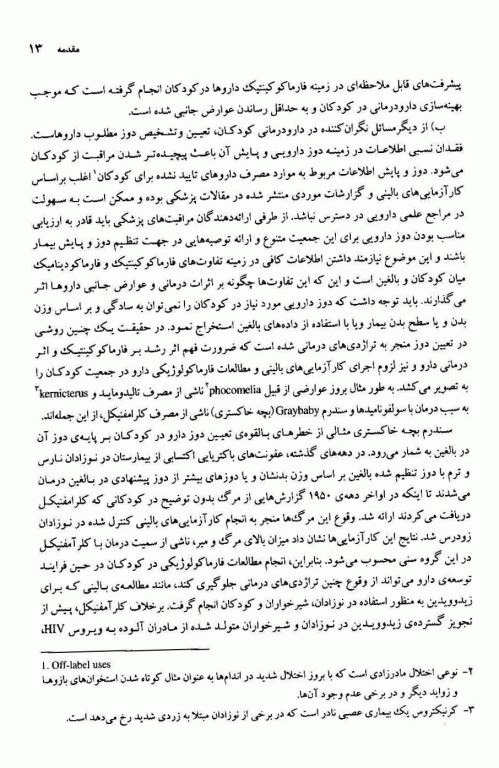 مقدمه ۱۳
پیشرفت‌های قابل ملاحظه‌ای در زمینه فارماکوکینتیک داروها در کودکان انجام گرفته است که موجب
بهینه‌سازی دارودرمانی در کودکان و به حداقل رساندن عوارض جانبی شده است.
ب) از دیگر مسائل نگران‌کننده در دارودرمانی کودکان، تعیین وتشخیص دوز مطلوب داروهاست.
فقدان نسبی اطلاعات در زمینه دوز دارویی و پایش آن باعث پیچیده‌تر شدن مراقبت از کودکان
می‌شود. دوز و پایش اطلاعات مربوط به موارد مصرف داروهای تایید نشده برای کودکان۱ اغلب براساس
کارآزمایی‌های بالینی و گزارشات موردی منتشر شده در مقالات پزشکی بوده و ممکن است به سهولت
در مراجع علمی دارویی در دسترس نباشد. از طرفی ارائه‌دهندگان مراقبت‌های پزشکی باید قادر به ارزیابی
مناسب بودن دوز دارویی برای این جمعیت متنوع و ارائه توصیه‌هایی در جهت تنظیم دوز و پایش بیمار
باشند و این موضوع نیازمند داشتن اطلاعات کافی در زمینه تفاوت‌های فارماکوکینتیک و فارماکودینامیک
میان کودکان و بالغین است و این که این تفاوت‌ها چگونه بر اثرات درمانی و عوارض جانبی داروها اثر
می‌گذارند. باید توجه داشت که دوز دارویی مورد نیاز در کودکان را نمی‌توان به سادگی و بر اساس وزن
بدن و یا سطح بدن بیمار ویا با استفاده از داده‌های بالغین استخراج نمود. در حقیقت یک چنین روشی
در تعیین دوز منجر به تراژدی‌های درمانی شده است که ضرورت فهم اثر رشد بر فارماکوکینتیک و اثر
درمانی دارو و نیز لزوم اجرای کارآزمایی‌های بالینی و مطالعات فارماکولوژیکی دارو در جمعیت کودکان را
به تصویر می‌کشد. به طور مثال بروز عوارضی از قبیل phocomelia۲ ناشی از مصرف تالیدوماید و kernicterus۳
به سبب درمان با سولفونامیدها و سندرم Graybaby (بچه خاکستری) ناشی از مصرف کلرامفنیکل، از این جمله‌اند.
سندرم بچه خاکستری مثالی از خطرهای بالقوه‌ی تعیین دوز دارو در کودکان بر پایه‌ی دوز آن
در بالغین به شمار می‌رود. در دهه‌های گذشته، عفونت‌های باکتریایی اکتسابی از بیمارستان در نوزادان نارس
و ترم با دوز تنظیم شده بالغین بر اساس وزن بدنشان و یا دوزهای بیشتر از دوز پیشنهادی در بالغین درمان
می‌شدند تا اینکه در اواخر دهه‌ی ۱۹۵۰ گزارش‌هایی از مرگ بدون توضیح در کودکانی که کلرامفنیکل
دریافت می‌کردند ارائه شد. وقوع این مرگ‌ها منجر به انجام کارآزمایی‌های بالینی کنترل شده در نوزادان
زودرس شد. نتایج این کارآزمایی‌ها نشان داد میزان بالای مرگ و میر، ناشی از سمیت درمان با کلرآمفنیکل
در این گروه سنی محسوب می‌شود. بنابراین، انجام مطالعات فارماکولوژیکی در کودکان در حین فرایند
توسعه‌ی دارو می‌تواند از وقوع چنین تراژدی‌های درمانی جلوگیری کند، مانند مطالعه‌ی بالینی که برای
زیدوویدین به منظور استفاده در نوزادان، شیرخواران و کودکان انجام گرفت. برخلاف کلرآمفنیکل، پیش از
تجویز گسترده‌ی زیدوویدین در نوزادان و شیرخواران متولد شده از مادران آلوده به ویروس HIV،
1. Off-label uses
۲- نوعی اختلال مادرزادی است که با بروز اختلال شدید در اندام‌ها به عنوان مثال کوتاه شدن استخوان‌های بازوها
و زواید دیگر و در برخی عدم وجود آن‌ها.
۳- کرنیکتروس یک بیماری عصبی نادر است که در برخی از نوزادان مبتلا به زردی شدید رخ می‌دهد است.